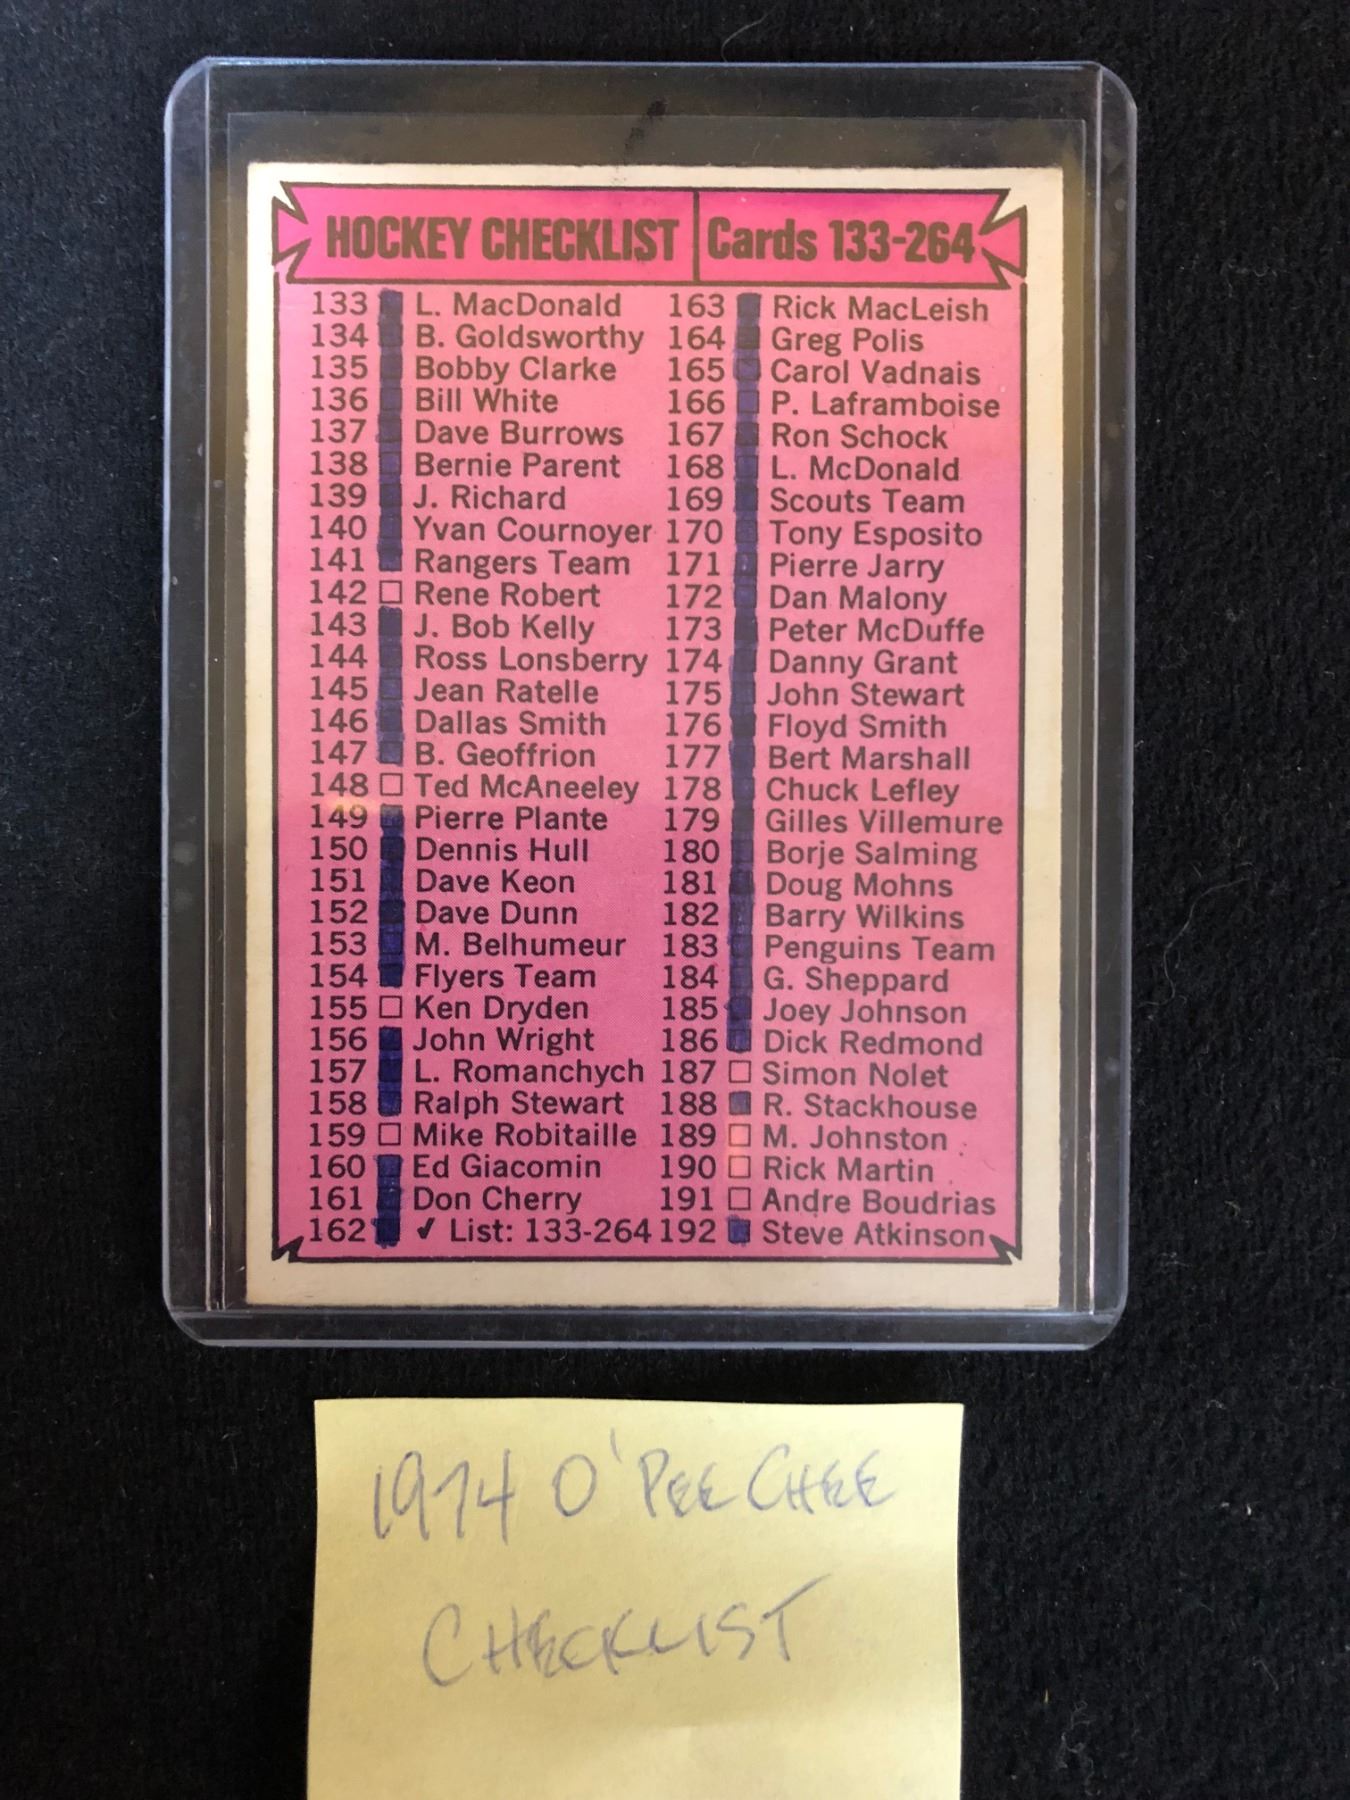 HOCKEY CHECKLIST Cards 133-264
133 L. MacDonald
134 B. Goldsworthy
135 Bobby Clarke
136 Bill White
137 Dave Burrows
138 Bernie Parent
139 J. Richard
140 Yvan Cournoyer
141 Rangers Team
142 □ Rene Robert
143 J. Bob Kelly
144 Ross Lonsberry
145 Jean Ratelle
146 Dallas Smith
147 B. Geoffrion
148 □ Ted McAneeley
149 Pierre Plante
150 Dennis Hull
151 Dave Keon
152 Dave Dunn
153 M. Belhumeur
154 Flyers Team
155 □ Ken Dryden
156 John Wright
157 L. Romanchych
158 Ralph Stewart
159 □ Mike Robitaille
160 Ed Giacomin
161 Don Cherry
162 ✓ List: 133-264
163 Rick MacLeish
164 Greg Polis
165 Carol Vadnais
166 P. Laframboise
167 Ron Schock
168 L. McDonald
169 Scouts Team
170 Tony Esposito
171 Pierre Jarry
172 Dan Malony
173 Peter McDuffe
174 Danny Grant
175 John Stewart
176 Floyd Smith
177 Bert Marshall
178 Chuck Lefley
179 Gilles Villemure
180 Borje Salming
181 Doug Mohns
182 Barry Wilkins
183 Penguins Team
184 G. Sheppard
185 Joey Johnson
186 Dick Redmond
187 □ Simon Nolet
188 R. Stackhouse
189 □ M. Johnston
190 □ Rick Martin
191 □ Andre Boudrias
192 Steve Atkinson
1974 O'PEE CHEE
CHECKLIST